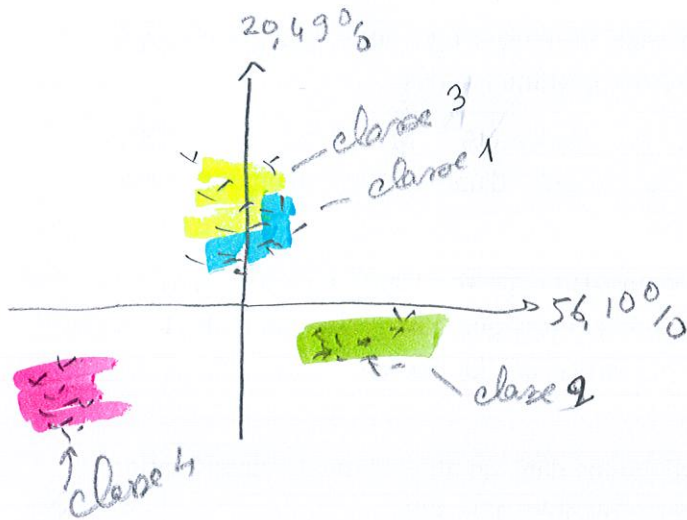 20,49%
classe 3
classe 1
56,10%
classe 2
classe 4